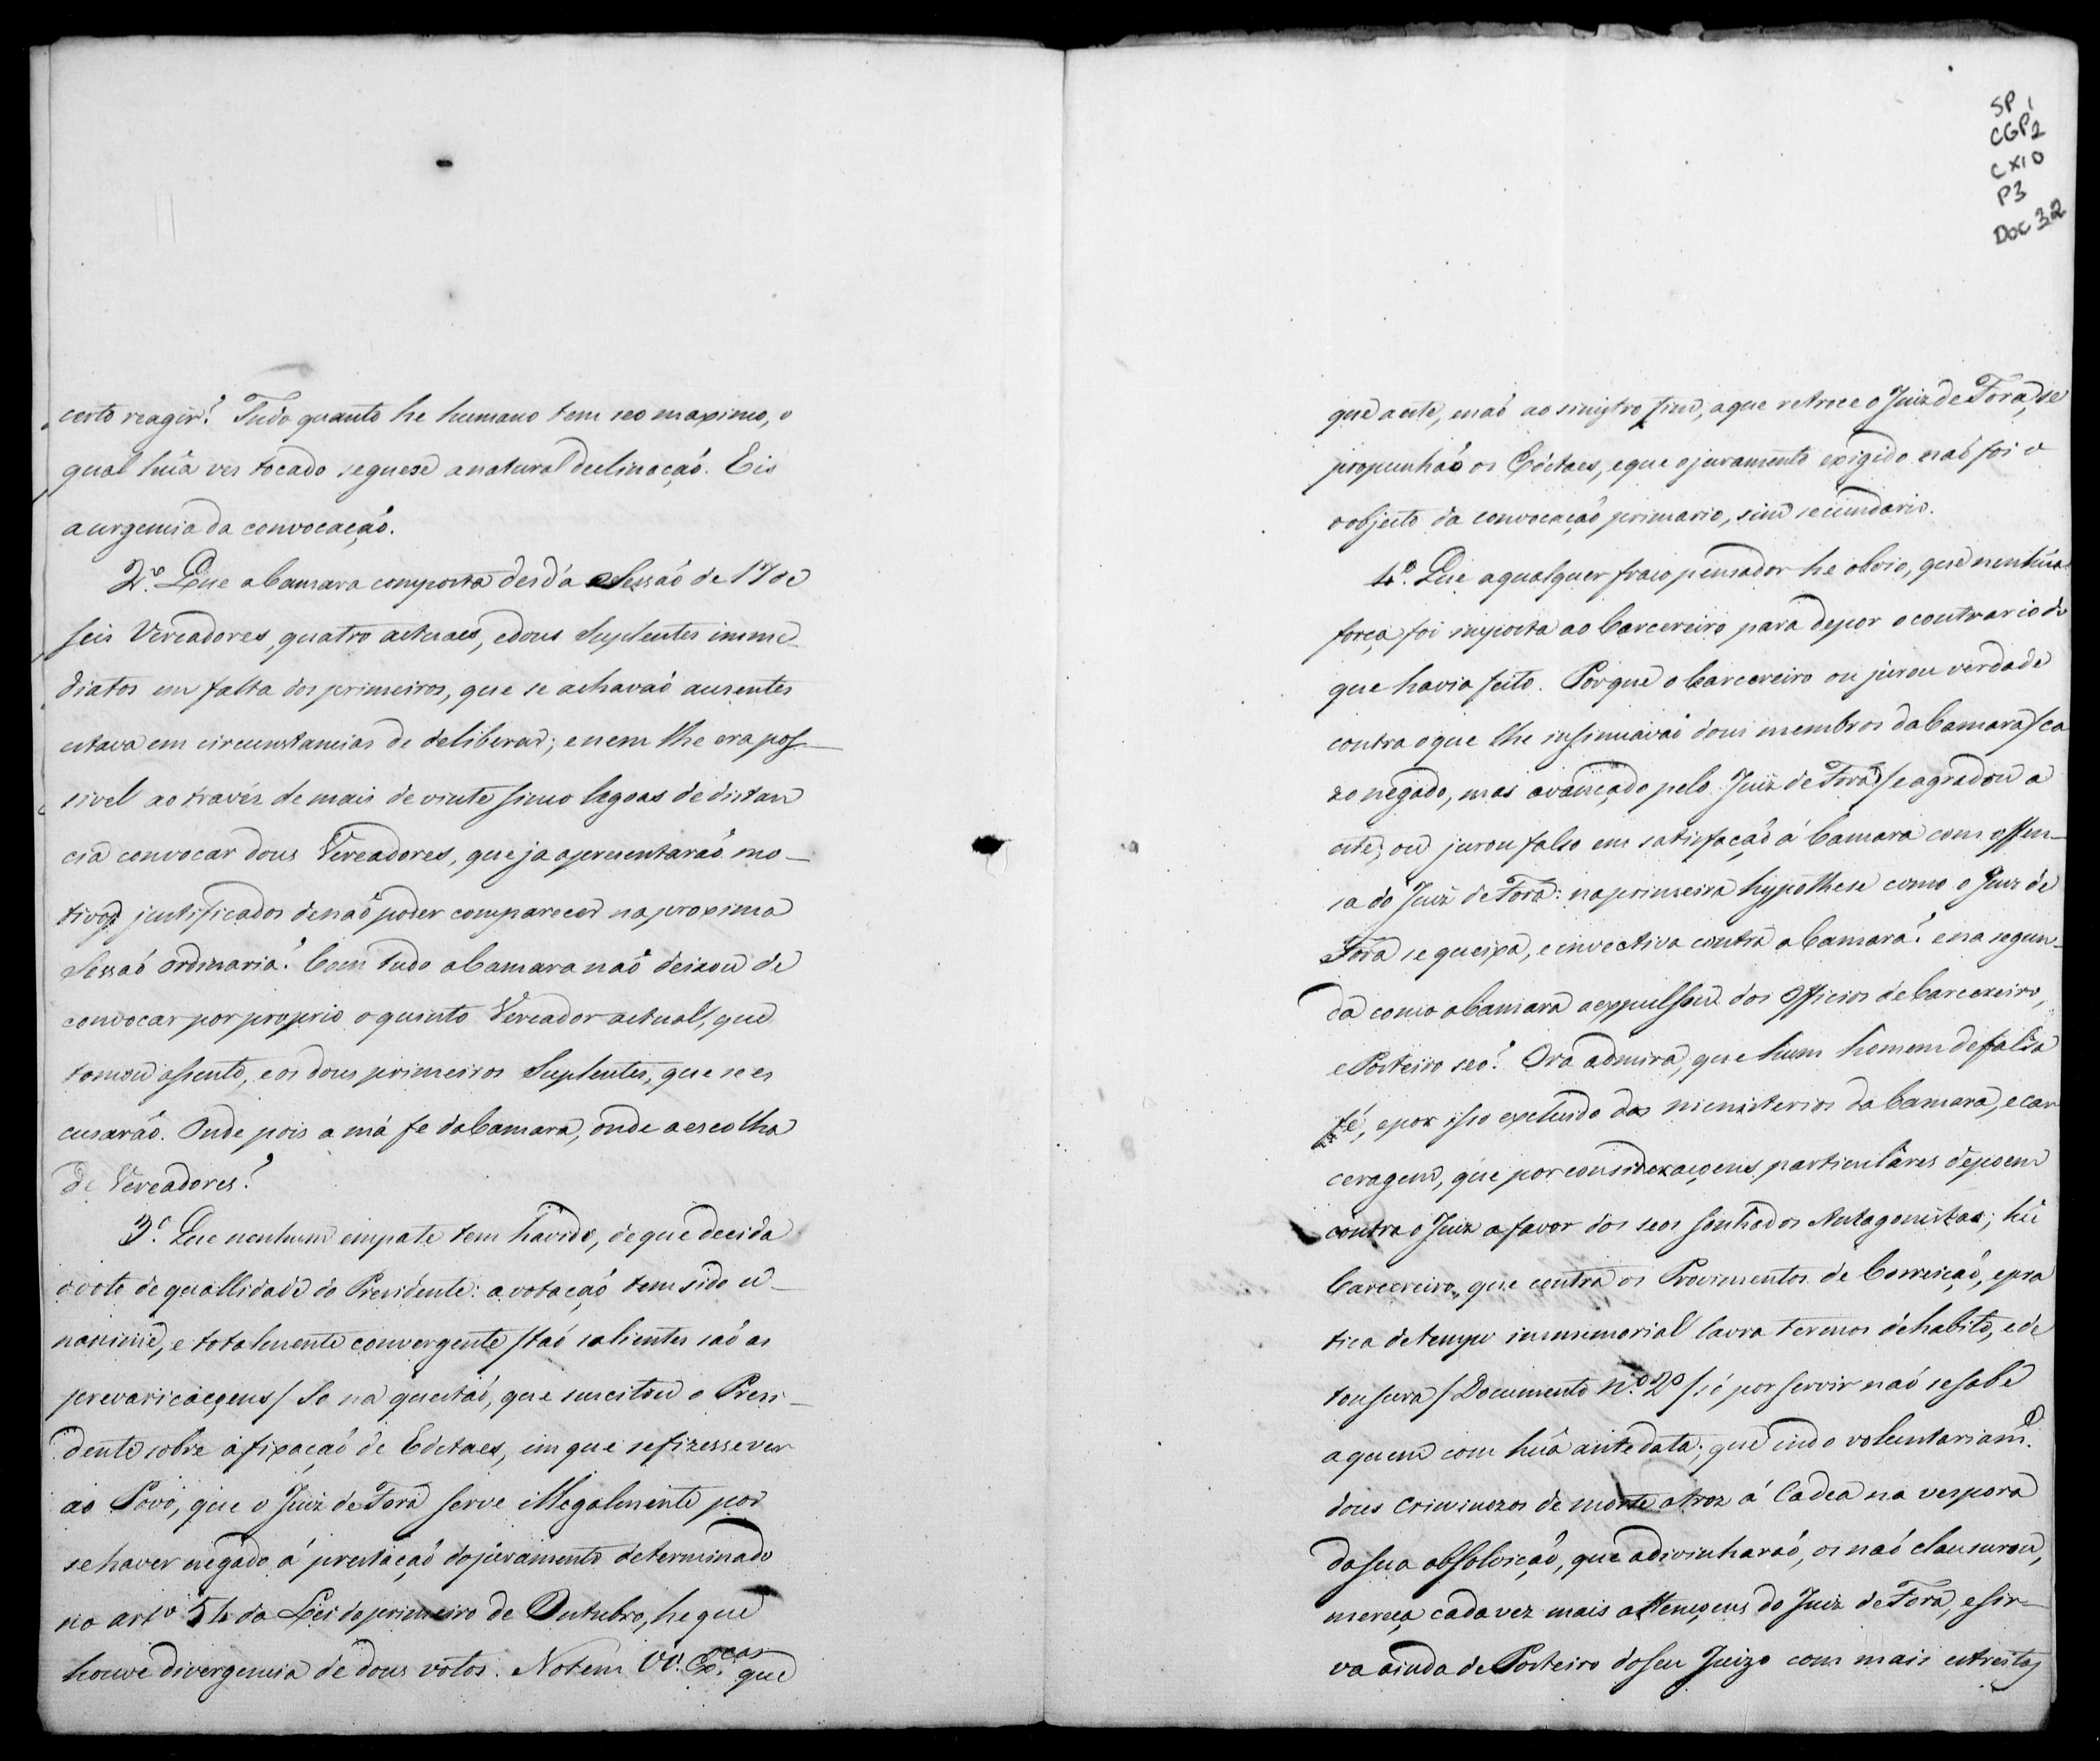 certo reagir? Tudo quanto he humano tem seo maximo, o
qual huã ves tocado seguese a natural declinação. Eis
a urgencia da convocação.
2º. Que a Camara composta desd'a Sessaõ de 17 de
seis Vereadores, quatro actuaes, e dous Suplentes imme-
diatos em falta dos primeiros, que se achavaõ ausentes
estava em circunstancias de deliberar; e nem lhe era pos-
sivel ao través de mais de vinte sinco legoas de distan
cia convocar dous Vereadores, que ja apresentaraõ mo-
tivos justificados de naõ poder comparecer na proxima
Sessaõ ordinaria? Com tudo a Camara naõ deixou de
convocar por proprio o quinto Vereador actual, que
tomou assento, e os dous primeiros Suplentes, que se es
cusaraõ. Onde pois a má fe da Camara, onde a escolha
de Vereadores?
3º. Que nenhum empate tem havido, de que decida
o voto de quallidade do Presidente: a votação tem sido u-
nanime, e totalmente convergente /taõ salientes saõ as
prevaricaçoens/ So na questaõ, que suscitou o Presi-
dente sobre afixaçaõ de Edictaes, em que se fizesse ver
ao Povo, que o Juiz de Fora serve illegalmente por
se haver negado á prestaçaõ do juramento determinado
no artº 54 da Lei do primeiro de Outubro, he que
houve divergencia de dous votos. Notem VV. Excas. que
SP 1
CGP2
CX10
P3
Doc 32
que ante, e naõ ao sinistro fim, a que retroce o Juiz de Fora, se
propunhaõ os Edictaes, e que o juramento exigido naõ foi o
o objecto da convocaçaõ primario, sim secundario.
4º. Que a qualquer fraco pensador he obvio, que nenhũa
força foi imposta ao Carcereiro para depor o contrario do
que havia feito. Porque o Carcereiro ou jurou verdade
contra o que lhe insinuavaõ dous membros da Camara /ca
zo negado, mas avançado pelo Juiz de Fora/ e agradou a
este; ou jurou falso em satisfaçaõ á Camara com offen-
sa do Juiz de Fora: na primeira hypothese como o Juiz de
Fora se queixa, e invectiva contra a Camara? e na segun-
da como a Camara a expulsou dos Officios de Carcereiro,
e Porteiro seo? Ora admira, que hum homem de falsa
fé, e por isso excluido dos ministerios da Camara, e car
ceragem, que por consideraçoens particulares depoem
contra o Juiz a favor dos seos sonhados Antagonistas; hũ
Carcereiro, que contra os Provimentos de Correiçaõ, e pra
tica de tempo immemorial lavra termos de habito, e de
tonsura /Documento nº. 2º/ só por servir naõ se sabe
a quem com huã antedata; que indo voluntariamᵉ.
dous criminozos de morte atroz á Cadea na vespora
da sua absolviçaõ, que adivinharaõ, os naõ clausurou,
mereça cada vez mais attençoens do Juiz de Fora, e sir-
va ainda de Porteiro do seu Juizo com mais estreitas